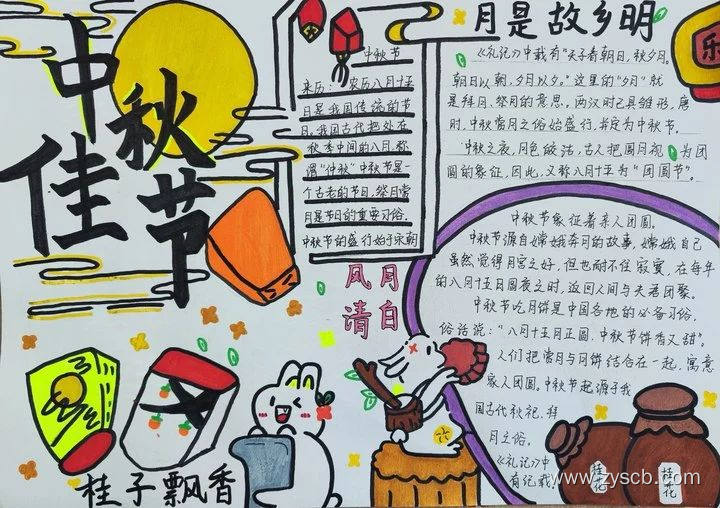 中秋佳节
中秋节
来历：农历八月十五
日是我国传统的节
日。我国古代把处在
秋季中间的八月，称
谓“仲秋”中秋节是一
个古老的节日，祭月赏
月是节日的重要习俗。
中秋节的盛行始于宋朝
月是故乡明
《礼记》中载有“天子春朝日，秋夕月。
朝日以朝，夕月以夕。”这里的“夕月”就
是拜月、祭月的意思。两汉时已具雏形，唐
时，中秋赏月之俗始盛行，并定为中秋节。
中秋之夜，月色皎洁，古人把圆月视为团
圆的象征，因此，又称八月十五为“团圆节”。
乐
中秋节象征着亲人团圆。
中秋节源自嫦娥奔月的故事，嫦娥自己
虽然觉得月宫之好，但也耐不住寂寞，在每年
的八月十五日圆夜之时，返回人间与夫君团聚。
中秋节吃月饼是中国各地的必备习俗，
俗话说：“八月十五月正圆，中秋节饼香又甜”。
人们把赏月与月饼结合在一起，寓意
家人团圆。中秋节起源于我
国古代秋祀、拜
月之俗。
《礼记》中
有记载
风月
清白
桂子飘香
六
桂花
桂花
www.zyscb.com